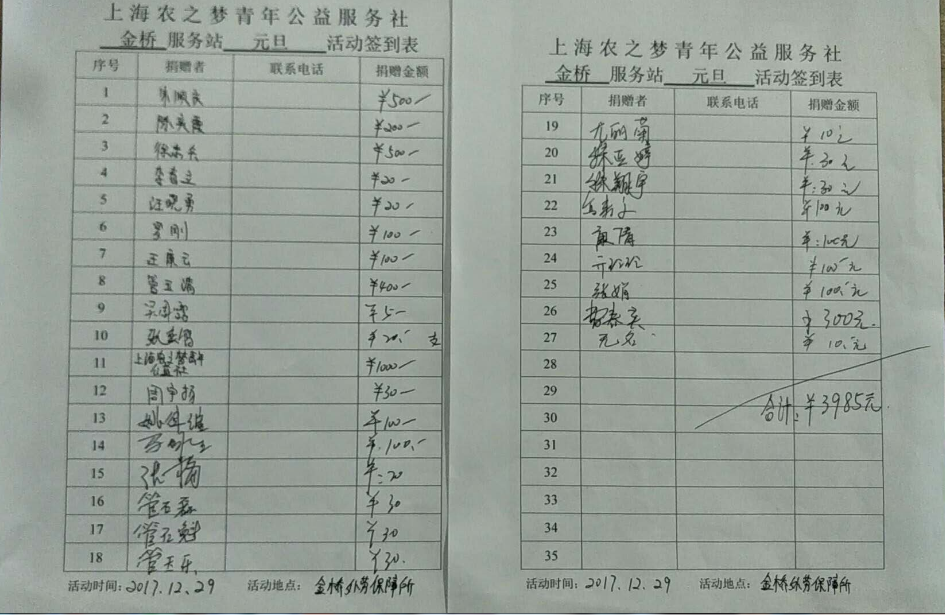 上海农之梦青年公益服务社
金桥 服务站 元旦 活动签到表
序号 捐赠者 联系电话 捐赠金额
1 ¥500-
2 ¥200-
3 ¥500-
4 ¥20-
5 汪晓勇 ¥20-
6 罗刚 ¥100-
7 ¥100-
8 ¥400-
9 ¥5-
10 ¥20.-
11 上海农之梦青年
公益社 ¥1000-
12 ¥30-
13 ¥100-
14 ¥.100.-
15 张娟 ¥:20
16 管石磊 ¥30
17 管石魁 ¥30
18 管天乐 ¥30.
活动时间:2017.12.29 活动地点: 金桥外劳保障所
上海农之梦青年公益服务社
金桥 服务站 元旦 活动签到表
序号 捐赠者 联系电话 捐赠金额
19 尤丽菊 ¥10元
20 徐亚婷 ¥.30元
21 徐翔宇 ¥:30元
22 ¥100元
23 ¥:100元
24 ¥100元
25 张娟 ¥100.元
26 ¥300元.
27 无名 ¥10.元
28
29
合计:¥3985元
30
31
32
33
34
35
活动时间:2017.12.29 活动地点: 金桥外劳保障所